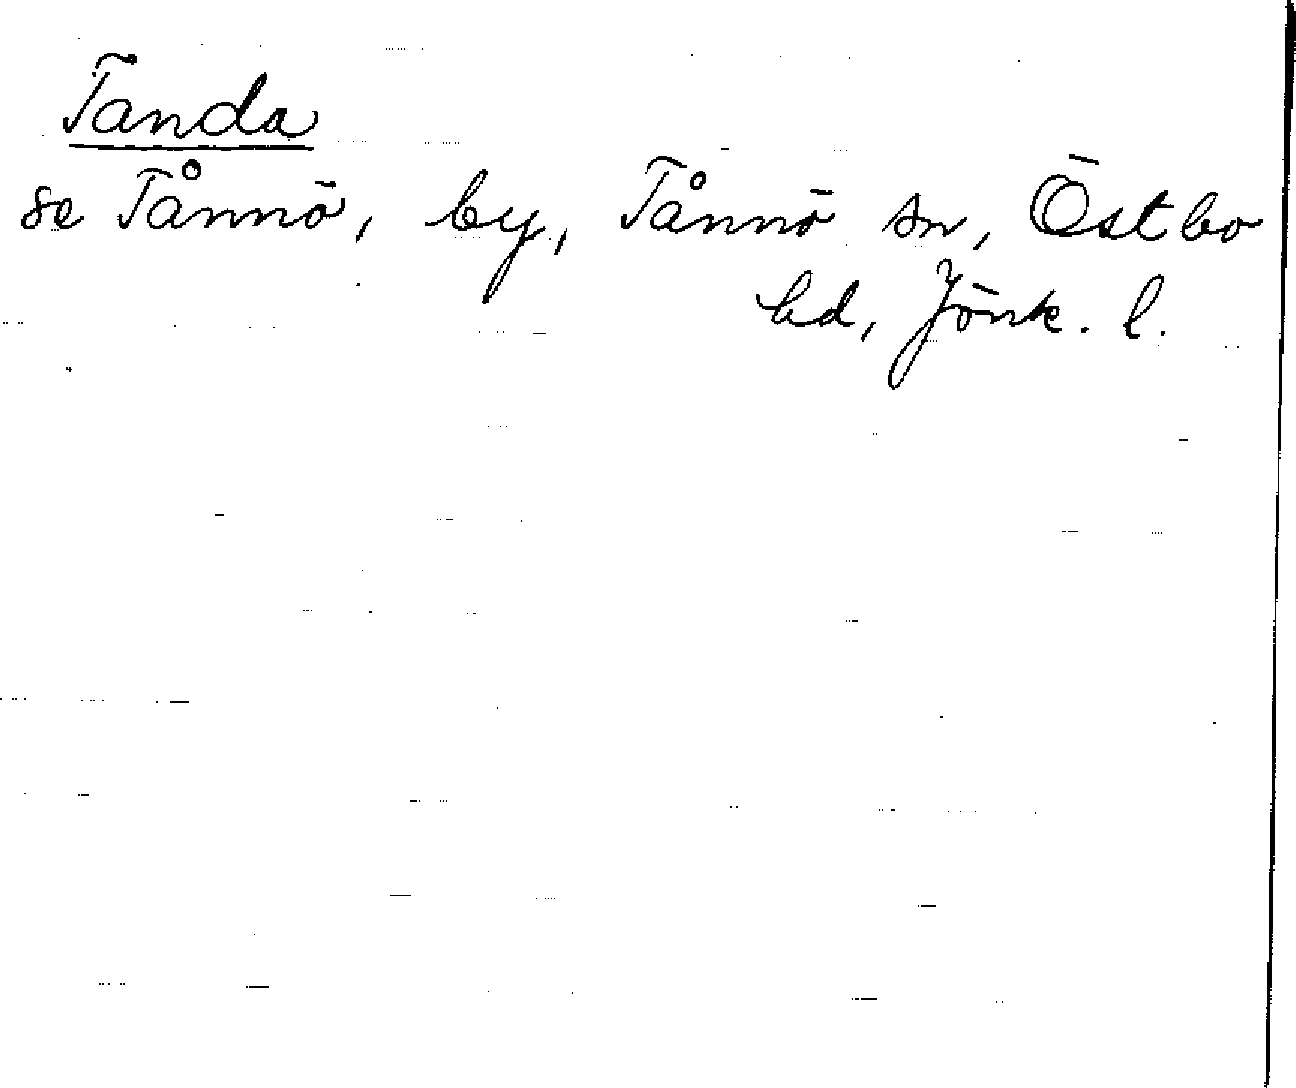 Tanda
se Tånnö, by, Tånnö sn, Östbo
hd, Jönk. l.